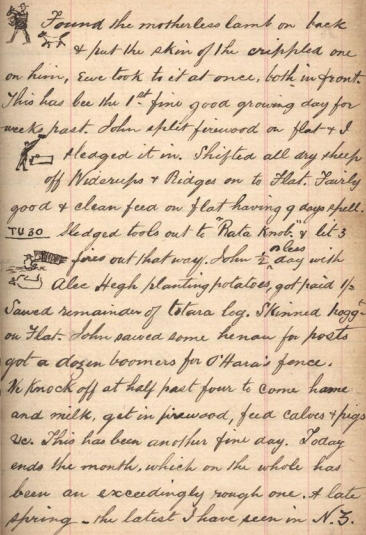 Found the motherless lamb on back
& put the skin of the crippled one
on him, Ewe took to it at once, both in front.
This has bee the 1st fine good growing day for
weeks past. John split firewood on flat & I
sledged it in. Shifted all dry sheep
off Widerups & Ridges on to Flat. Fairly
good & clean feed on flat having 9 days spell.
TU 30 Sledged tools out to "Rata Knob" & lit 3
fires out that way. John ½ day with
Alec Hegh planting potatoes, got paid ½
Sawed remainder of totara log. Skinned hogg
on Flat. John sawed some henau for posts
got a dozen boomers for O'Hara's fence.
We knock off at half past four to come hame
and milk, get in firewood, feed calves & pigs
&c. This has been another fine day. Today
ends the month, which on the whole has
been an exceedingly rough one. A late
spring - the latest I have seen in N.Z.